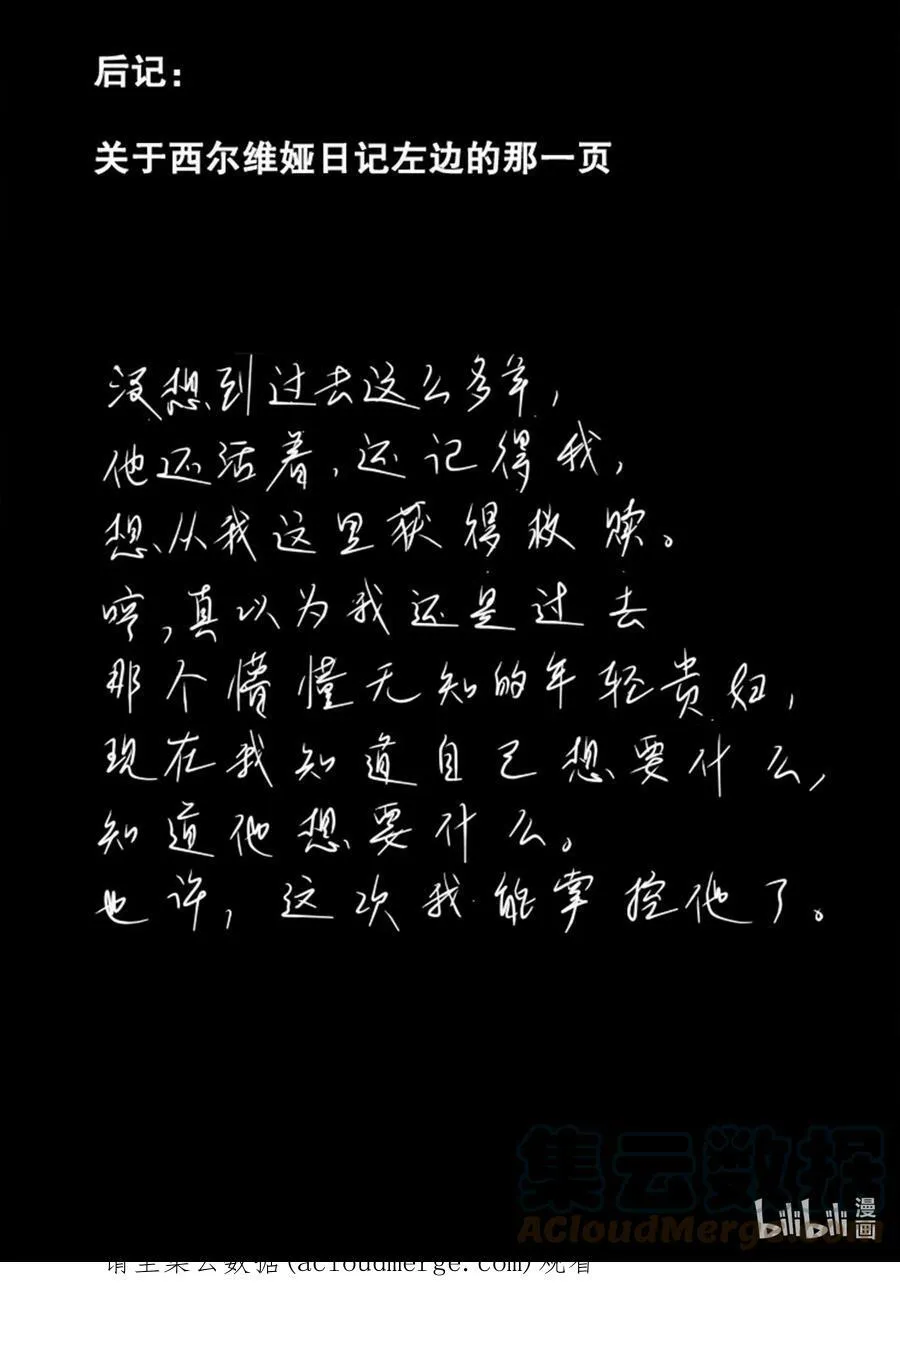 后记：
关于西尔维娅日记左边的那一页
没想到过去这么多年，
他还活着，还记得我，
想从我这里获得救赎。
哼，真以为我还是过去
那个懵懂无知的年轻贵妇，
现在我知道自己想要什么，
知道他想要什么。
也许，这次我能掌控他了。
集云数据
ACloudMerge.com
bilibili 漫画
请至集云数据(acloudmerge.com)观看